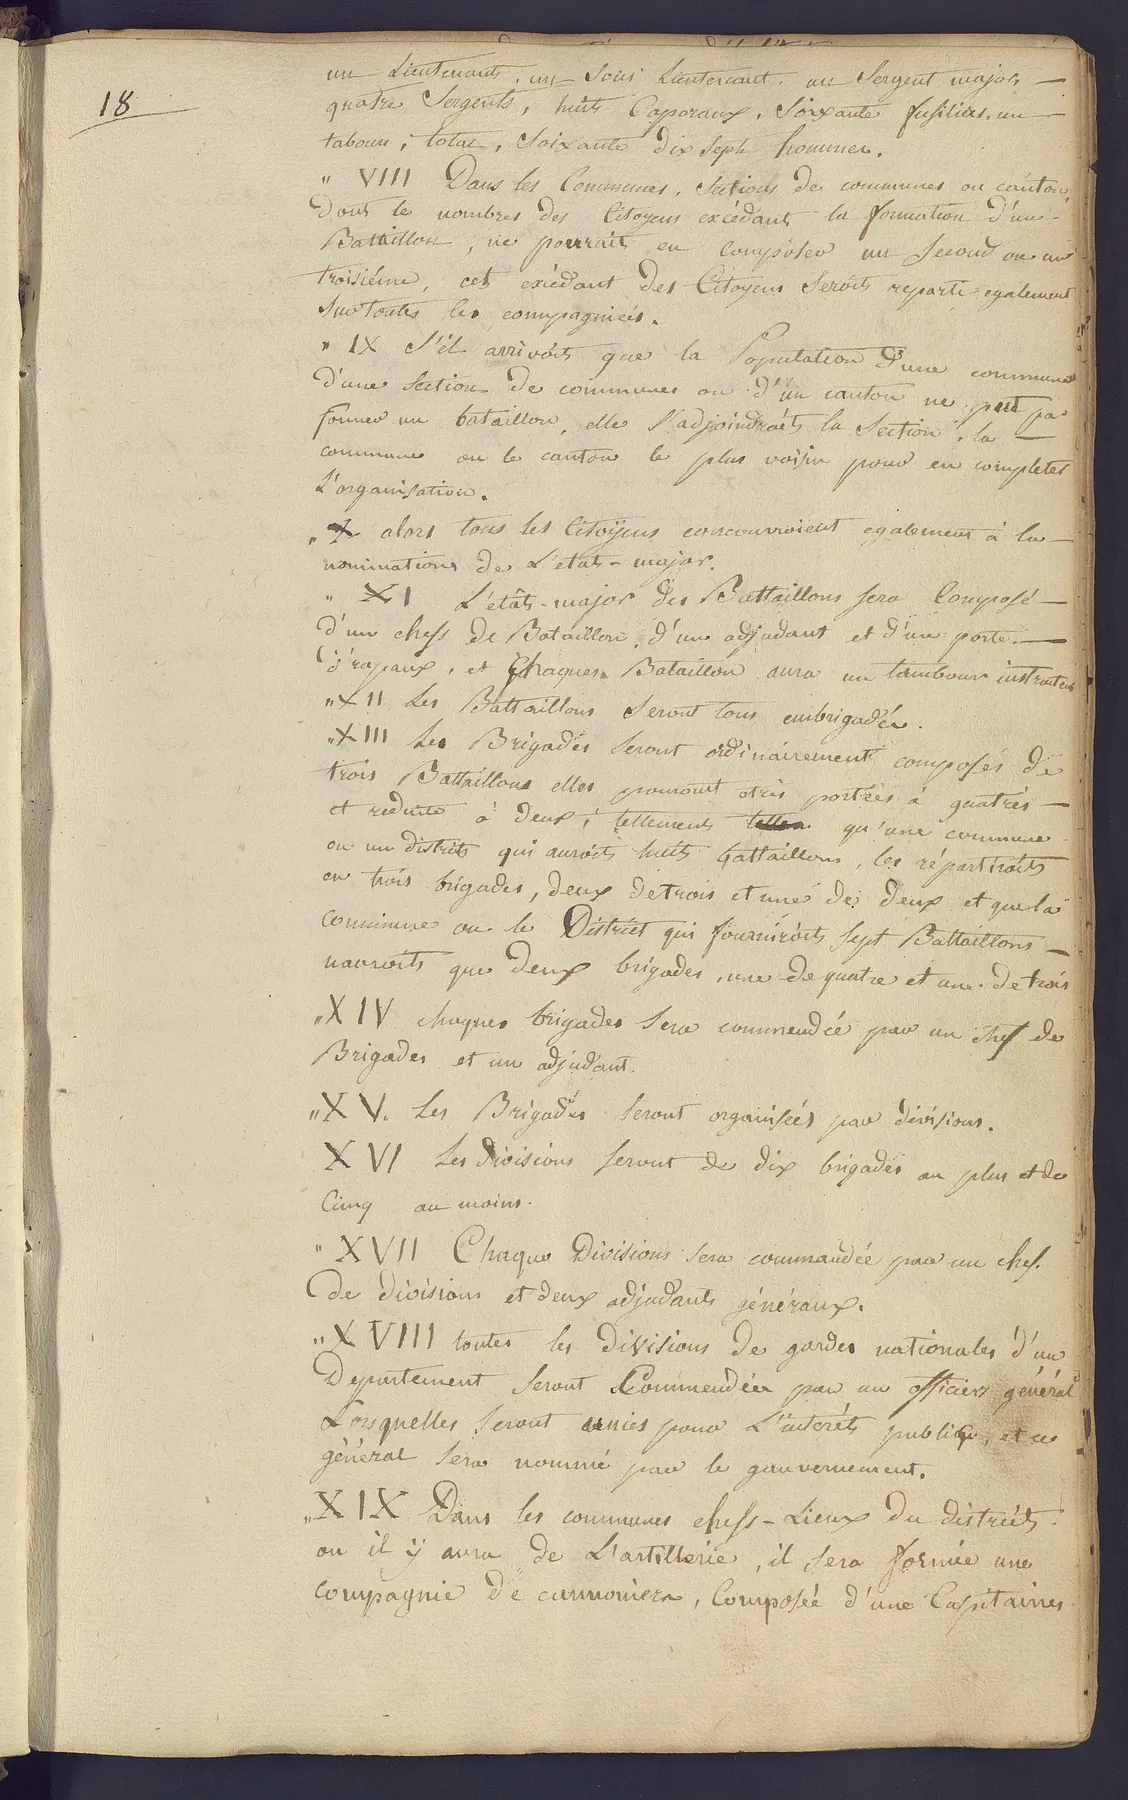 18
un Lieutenant, un Sous Lieutenant, un Sergent major,
quatre Sergents, huit Caporaux, Soixante fusiliers, un
tabour; total, Soixante dix Sept hommes.
" VIII Dans les Communes, Sections de communes ou canton
dont le nombres des Citoyens excédant la formation d'un
Battaillon, ne pourrait en composer un Second ou un
troisiéme, cet exiédant des Citoyens Seroit reparti egalement
Sur toutes les compagnies.
" IX S'il arrivoit que la Population d'une commune
d'une Section de communes ou d'un canton ne put pa
former un bataillon, elle S'adjoindroit la Section, la
commune ou le canton le plus voisin pour en completer
L'organisation.
" X alors tous les Citoÿens concourroient egalement à la
nominations de L'etat-major.
" XI L'etât-major des Battaillons sera Composé
d'un chefs de Bataillon, d'un adjudant et d'un porte
Drapaux, et Chaques Bataillon aura un tambour instructeur
" XII Les Battaillons Seront tous embrigadés.
" XIII Les Brigades Seront ordinairement composés de
trois Battaillons elles pouront etres portées à quatres
et reduite à deux; tellements qu'une commune
ou un district qui auroit huit battaillons, les répartiroit
en trois brigades, deux de trois et une de deux et que la
commune ou le District qui fourniroit Sept Battaillons
nauroit que deux brigades, une de quatre et une de trois
" XIV chaques brigades Sera commendée par un chef de
Brigades et un adjudant.
" XV. Les Brigades Seront organisées par divisions.
XVI Les divisions Seront de dix brigades au plus et de
Cinq au moins.
" XVII Chaque Divisions Sera commandée par un chef.
de divisions et deux adjudants généraux.
" XVIII toutes les divisions de gardes nationales d'un
Departement Seront Commendées par un officiers général
Lorsquelles Seront unies pour L'interêt publiq, et ce
général Sera nommé par le gouvernement.
" XIX Dans les communes chefs-Lieux du district
ou il ÿ aura de L'artillerie, il Sera formée une
Compagnie de cannoniers, Composée d'une Capitaines